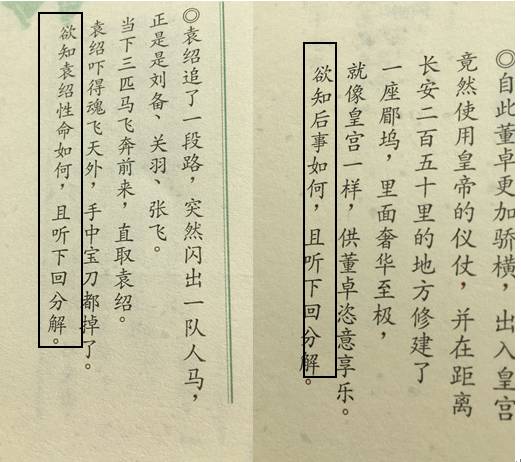 ◎袁绍追了一段路，突然闪出一队人马，
正是是刘备、关羽、张飞。
当下三匹马飞奔前来，直取袁绍。
袁绍吓得魂飞天外，手中宝刀都掉了。
欲知袁绍性命如何，且听下回分解。
◎自此董卓更加骄横，出入皇宫
竟然使用皇帝的仪仗，并在距离
长安二百五十里的地方修建了
一座郿坞，里面奢华至极，
就像皇宫一样，供董卓恣意享乐。
欲知后事如何，且听下回分解。